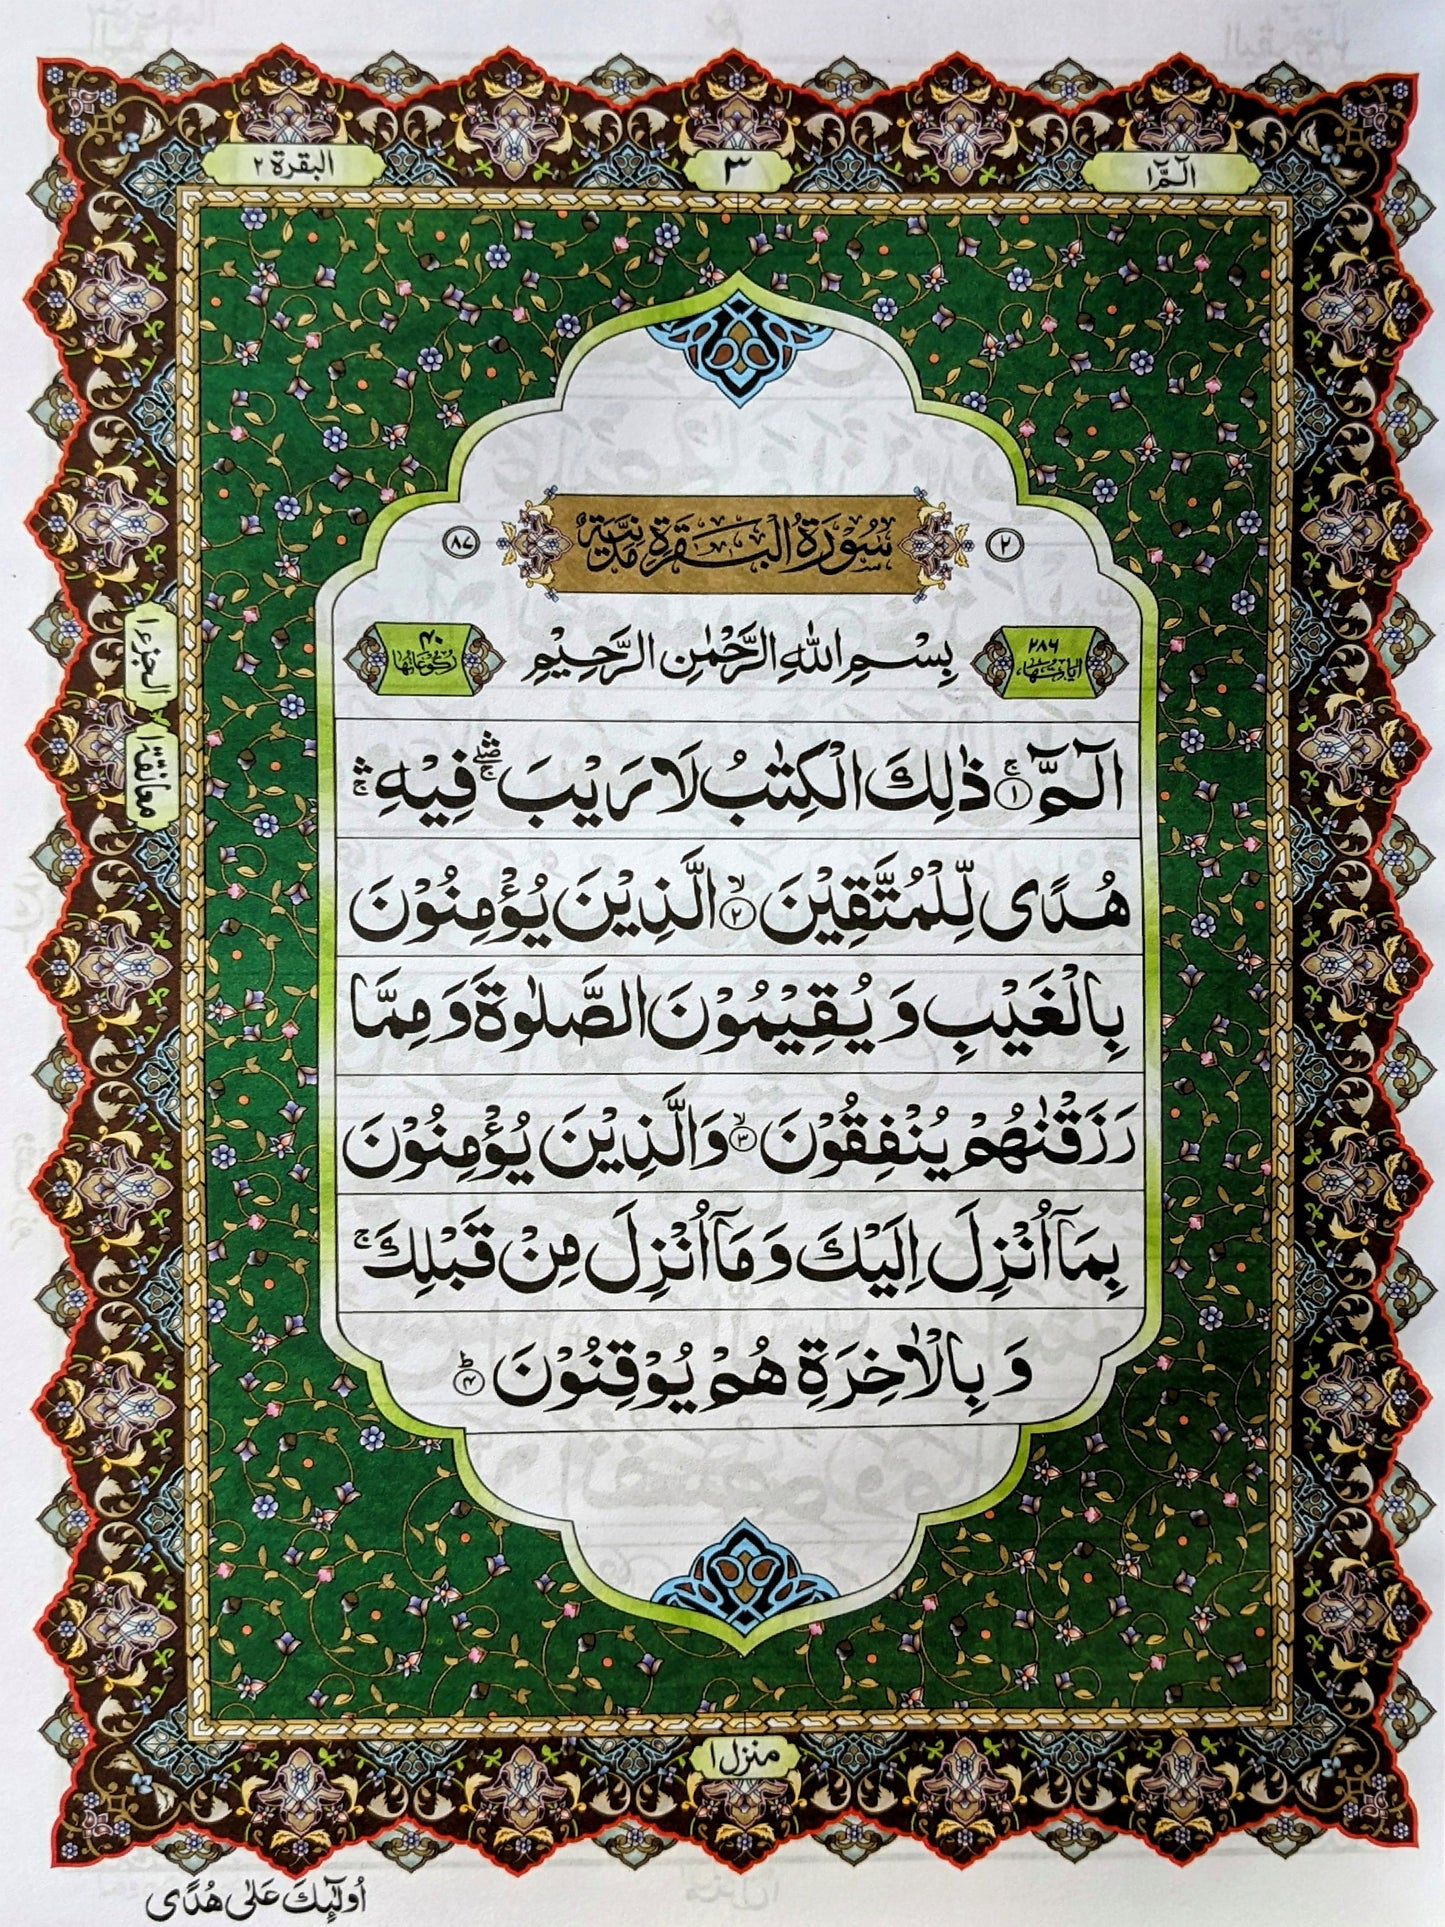 الٓمّٓ ١
٣
البقرة ٢
٢
سُوْرَةُ الْبَقَرَةِ مَدَنِيَّةٌ
٨٧
٢٨٦
اٰیاتہا
بِسْمِ اللّٰهِ الرَّحْمٰنِ الرَّحِيْمِ
۴۰
رکوعاتہا
الجزء ١
معانقة ١
الٓمّٓ ۚ﴿١﴾ ذٰلِكَ الْكِتٰبُ لَا رَيْبَ ۛۖۚ فِيْهِ ۛۚ
هُدًى لِّلْمُتَّقِيْنَ ﴿٢﴾ۙ الَّذِيْنَ يُؤْمِنُوْنَ
بِالْغَيْبِ وَ يُقِيْمُوْنَ الصَّلٰوةَ وَ مِمَّا
رَزَقْنٰهُمْ يُنْفِقُوْنَ ﴿٣﴾ۙ وَ الَّذِيْنَ يُؤْمِنُوْنَ
بِمَآ اُنْزِلَ اِلَيْكَ وَ مَآ اُنْزِلَ مِنْ قَبْلِكَ ۚ
وَ بِالْاٰخِرَةِ هُمْ يُوْقِنُوْنَ ﴿۴﴾ؕ
منزل ١
اُولٰٓئِكَ عَلٰى هُدًى